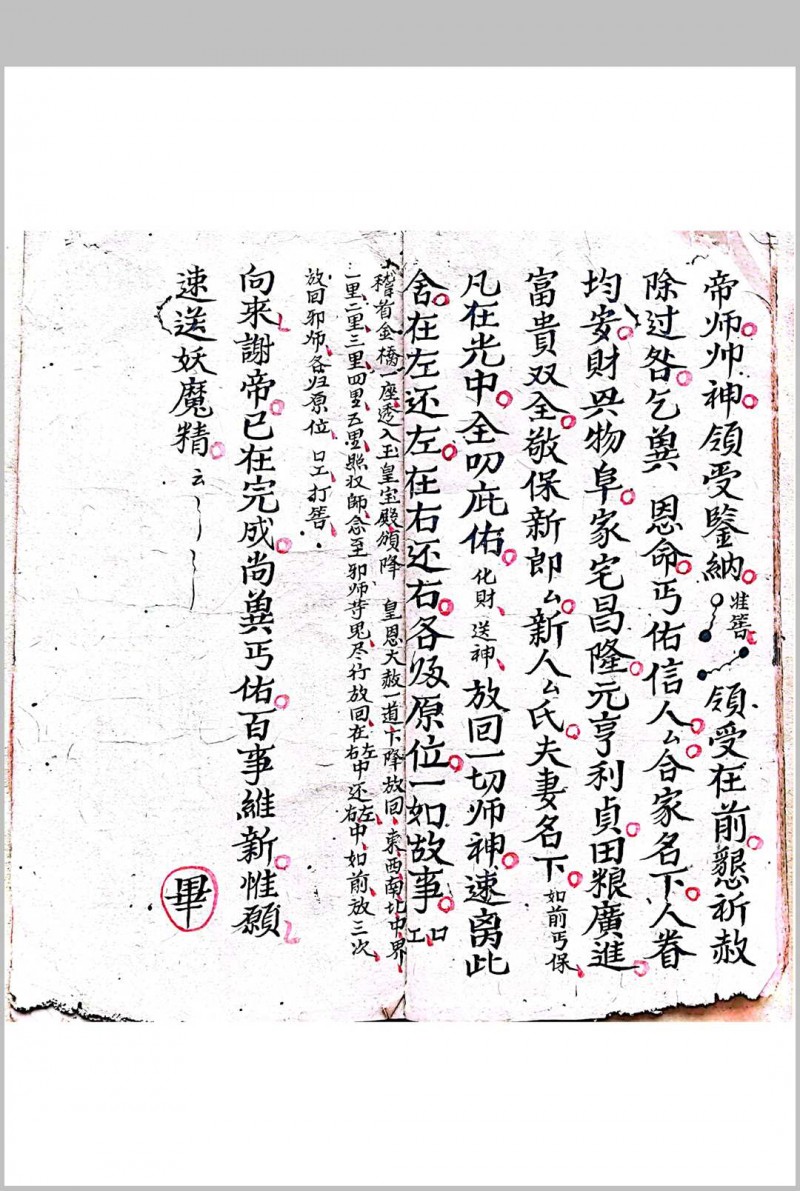 帝师帅神領受鑒納准筶領受在前懇祈赦
除过咎乞兾恩命丐佑信人厶合家名下人眷
均安財興物阜家宅昌隆元亨利貞田粮廣進
富貴双全敬保新郎厶新人厶氏夫妻名下如前丐保
凡在光中全叨庇佑化財送神放回一切师神速离此
舍在左还左在右还右各归原位一如故事
稽首金橋一座透入玉皇宝殿頒降皇恩大赦一道下降放回東西南北中界
一里二里三里四里五里照奴師念至邪师等鬼尽行放回在左右中还左右中如前放三次
放回邪师各归原位打筶
向來謝帝已在完成尚兾丐佑百事維新惟願
速送妖魔精云
畢